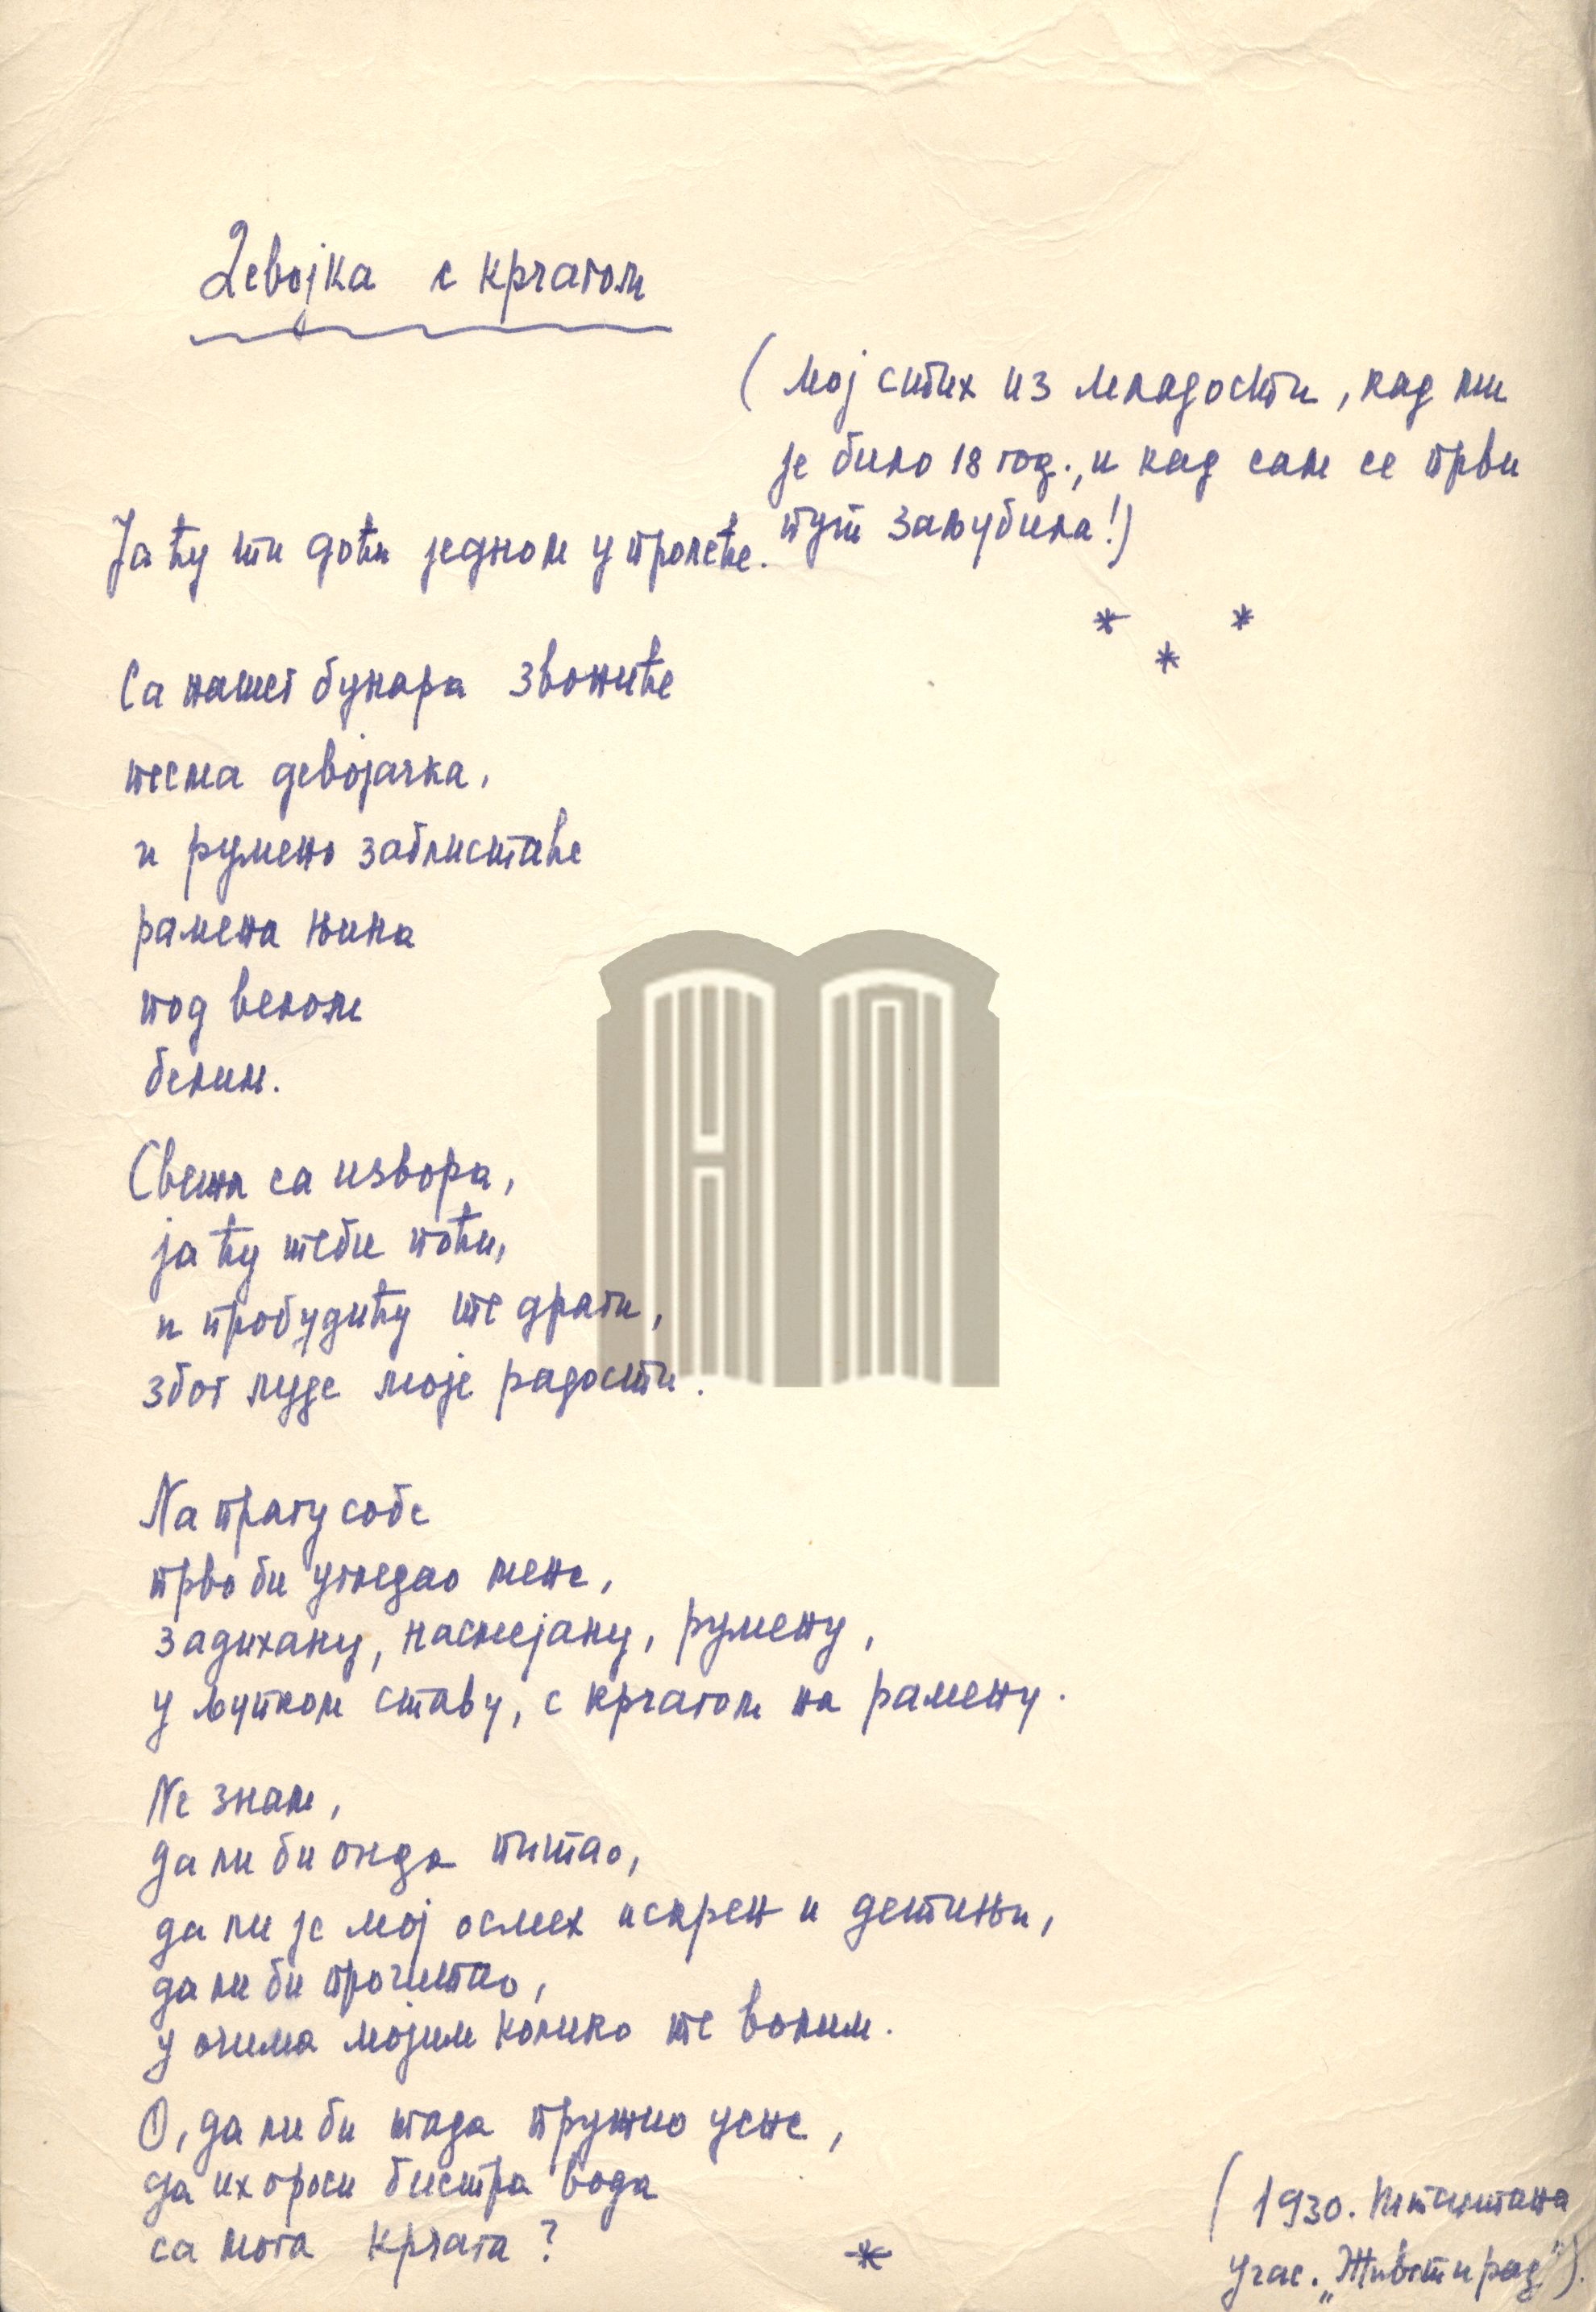 Девојка с крчагом
(мој стих из младости, кад ми
је било 18 год., и кад сам се први
пут заљубила!)
Ја ћу ти доћи једном у пролеће.
* * *
Са нашег бунара звониће
песма девојачка,
и румено заблистаће
рамена њина
под велом
белим.
Свежа са извора,
ја ћу теби поћи,
и пробудићу те драги,
због луде моје радости.
Na прагу собе
прво би угледао мене,
задихану, насмејану, румену,
у љупком ставу, с крчагом на рамену.
Ne знам,
да ли би онда питао,
да ли је мој осмех искрен и детињи,
да ли би прочитао,
у очима мојим колико те волим.
О, да ли би тада пружио усне,
да их ороси бистра вода
са мога крчага?
*
(1930.
у час. „Живот и рад").